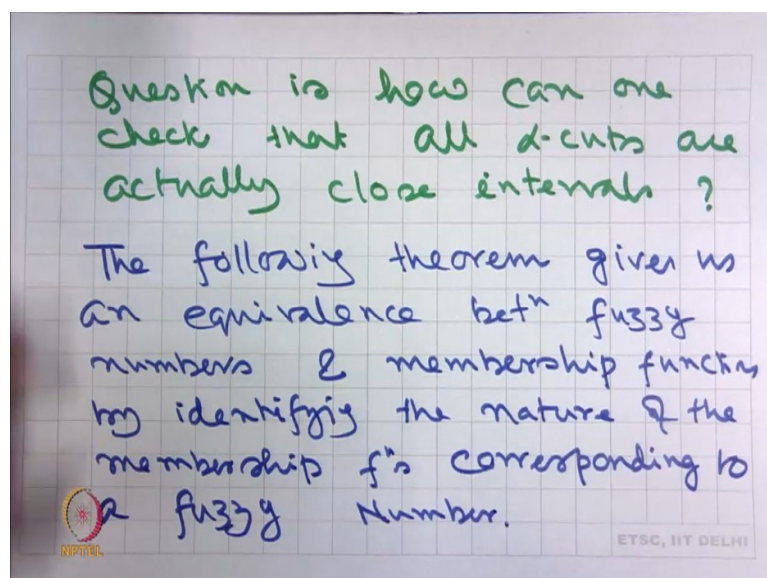 Question is how can one
check that all α-cuts are
actually close intervals ?
The followig theorem gives us
an equivalence betⁿ fuzzy
numbers & membership functions
by identifyig the nature of the
membership fⁿs corresponding to
a fuzzy Number.
NPTEL
ETSC, IIT DELHI